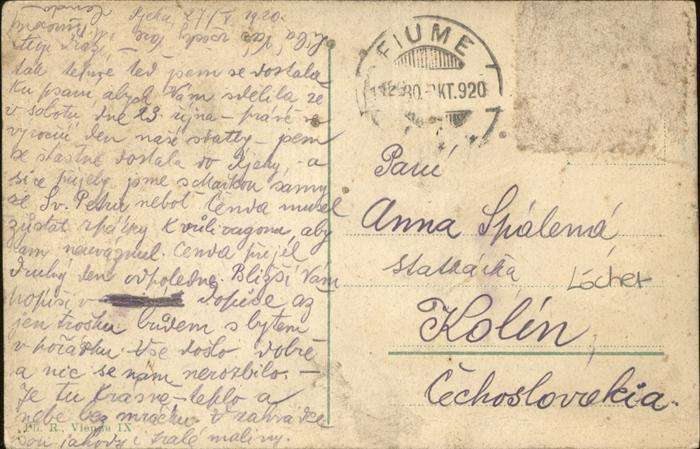 Rjeka, 27/X 1920.
tak teprve teď jsem se dostala
ku psaní, abych Vám sdělila, že
v sobotu, dne 23. října – právě ve
výroční den naší svatby – jsem
se šťastně dostala do Rjeky, a
sice přijely jsme s Mařkou samy
ze Sv. Petru, neboť Čenda musel
zůstat zpátky k vůli vagonu, aby
tam neuváznul. Čenda přijel
druhý den odpoledne. Bližší Vám
popíši v dopise až
jen trošku budem s bytem
v pořádku. Vše došlo dobře
a nic se nám nerozbilo. –
Je tu krásně – teplo a
nebe bez mráčku. V zahrádce
jsou jahody i zralé maliny.
Ph. R., Vienna IX
FIUME
KT.920
Paní
Anna Spálená,
statkářka
Lócher
Kolín,
Čechoslovakia.